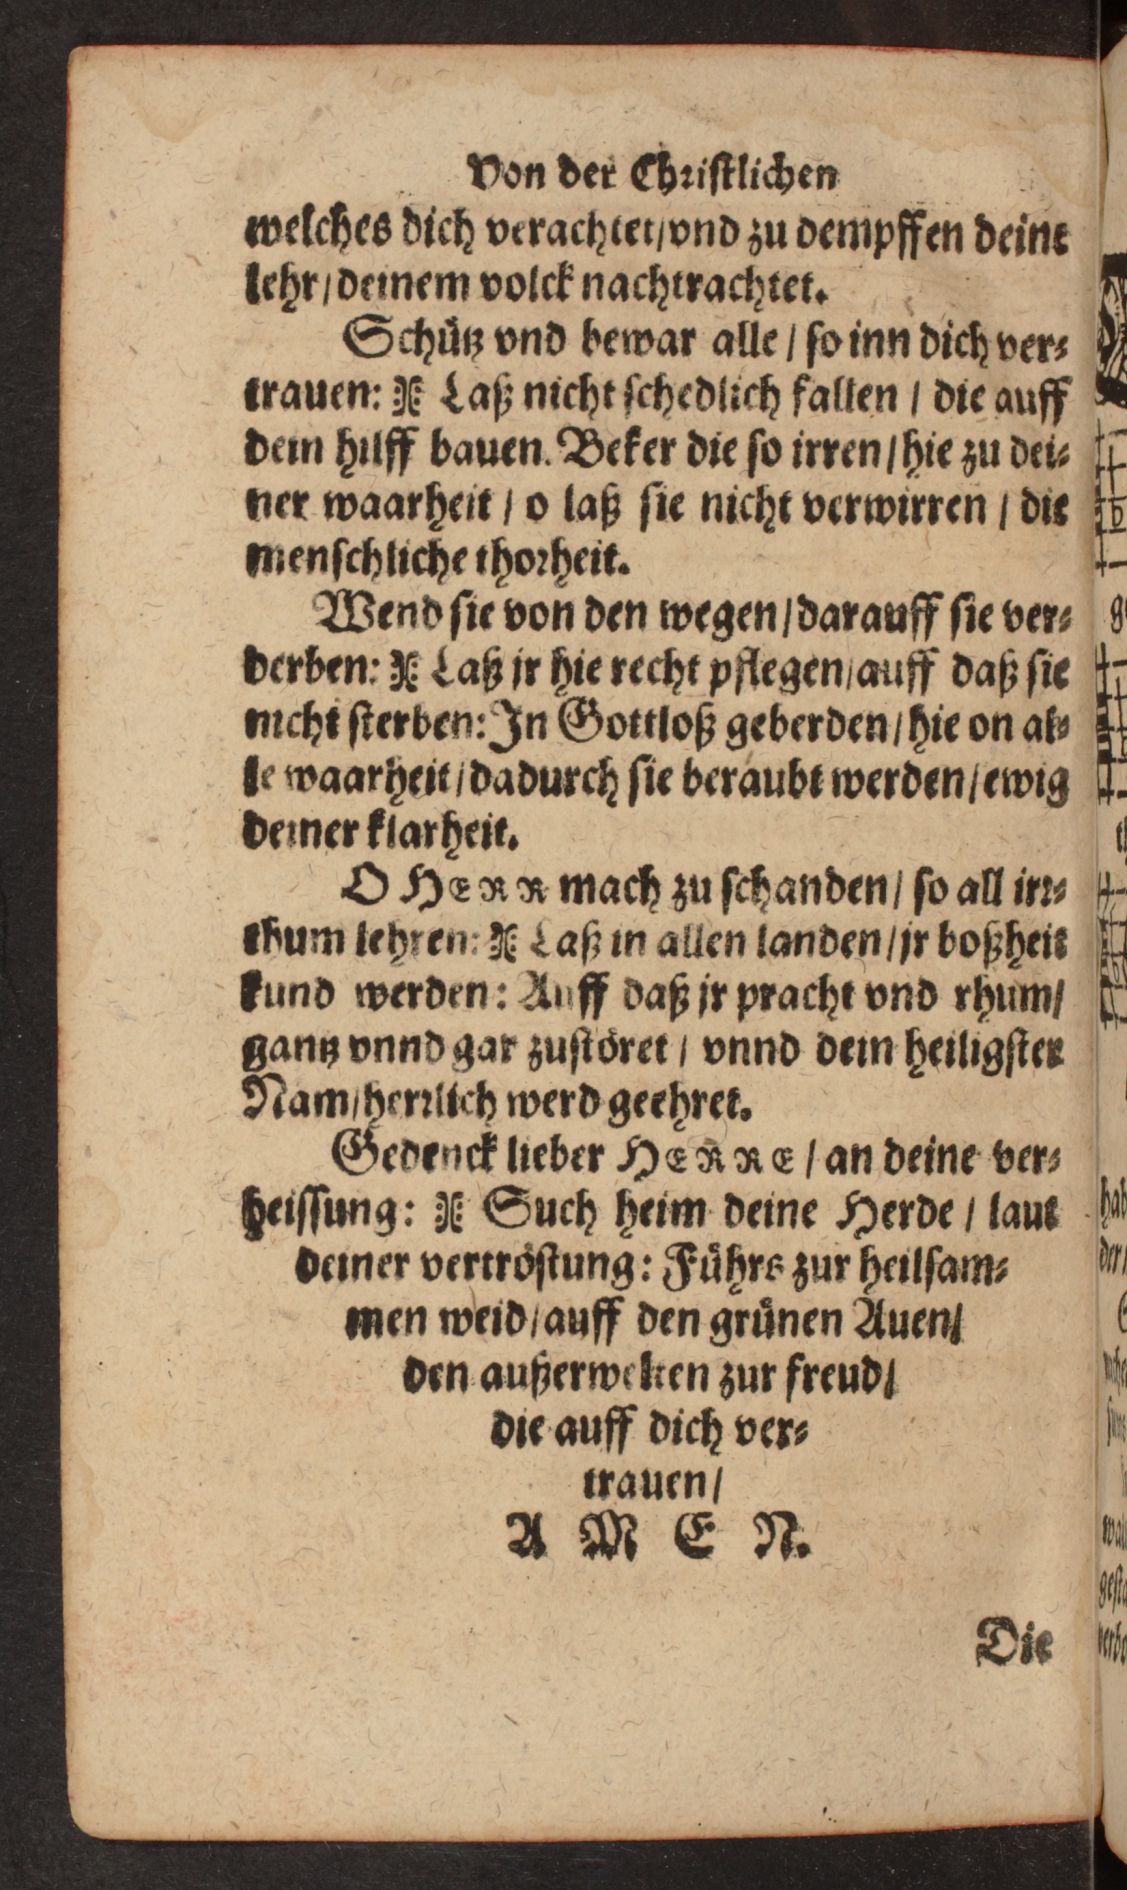 Von der Christlichen
welches dich verachtet/vnd zu dempffen deine
lehr/deinem volck nachtrachtet.
Schütz vnd bewar alle / so inn dich ver⸗
trauen: ※ Laß nicht schedlich fallen / die auff
dein hilff bauen. Beker die so irren/hie zu dei⸗
ner waarheit / o laß sie nicht verwirren / die
menschliche thorheit.
Wend sie von den wegen/darauff sie ver⸗
derben: ※ Laß jr hie recht pflegen/auff daß sie
nicht sterben: In Gottloß geberden/hie on al⸗
le waarheit/dadurch sie beraubt werden/ewig
deiner klarheit.
O HERR mach zu schanden/ so all irr⸗
thum lehren: ※ Laß in allen landen/jr boßheit
kund werden: Auff daß jr pracht vnd rhum/
gantz vnnd gar zustöret / vnnd dein heiligster
Nam/herrlich werd geehret.
Gedenck lieber HERRE / an deine ver⸗
heissung: ※ Such heim deine Herde / laut
deiner vertröstung: Führs zur heilsam⸗
men weid/auff den grünen Auen/
den außerwelten zur freud/
die auff dich ver⸗
trauen/
A M E N.
Die